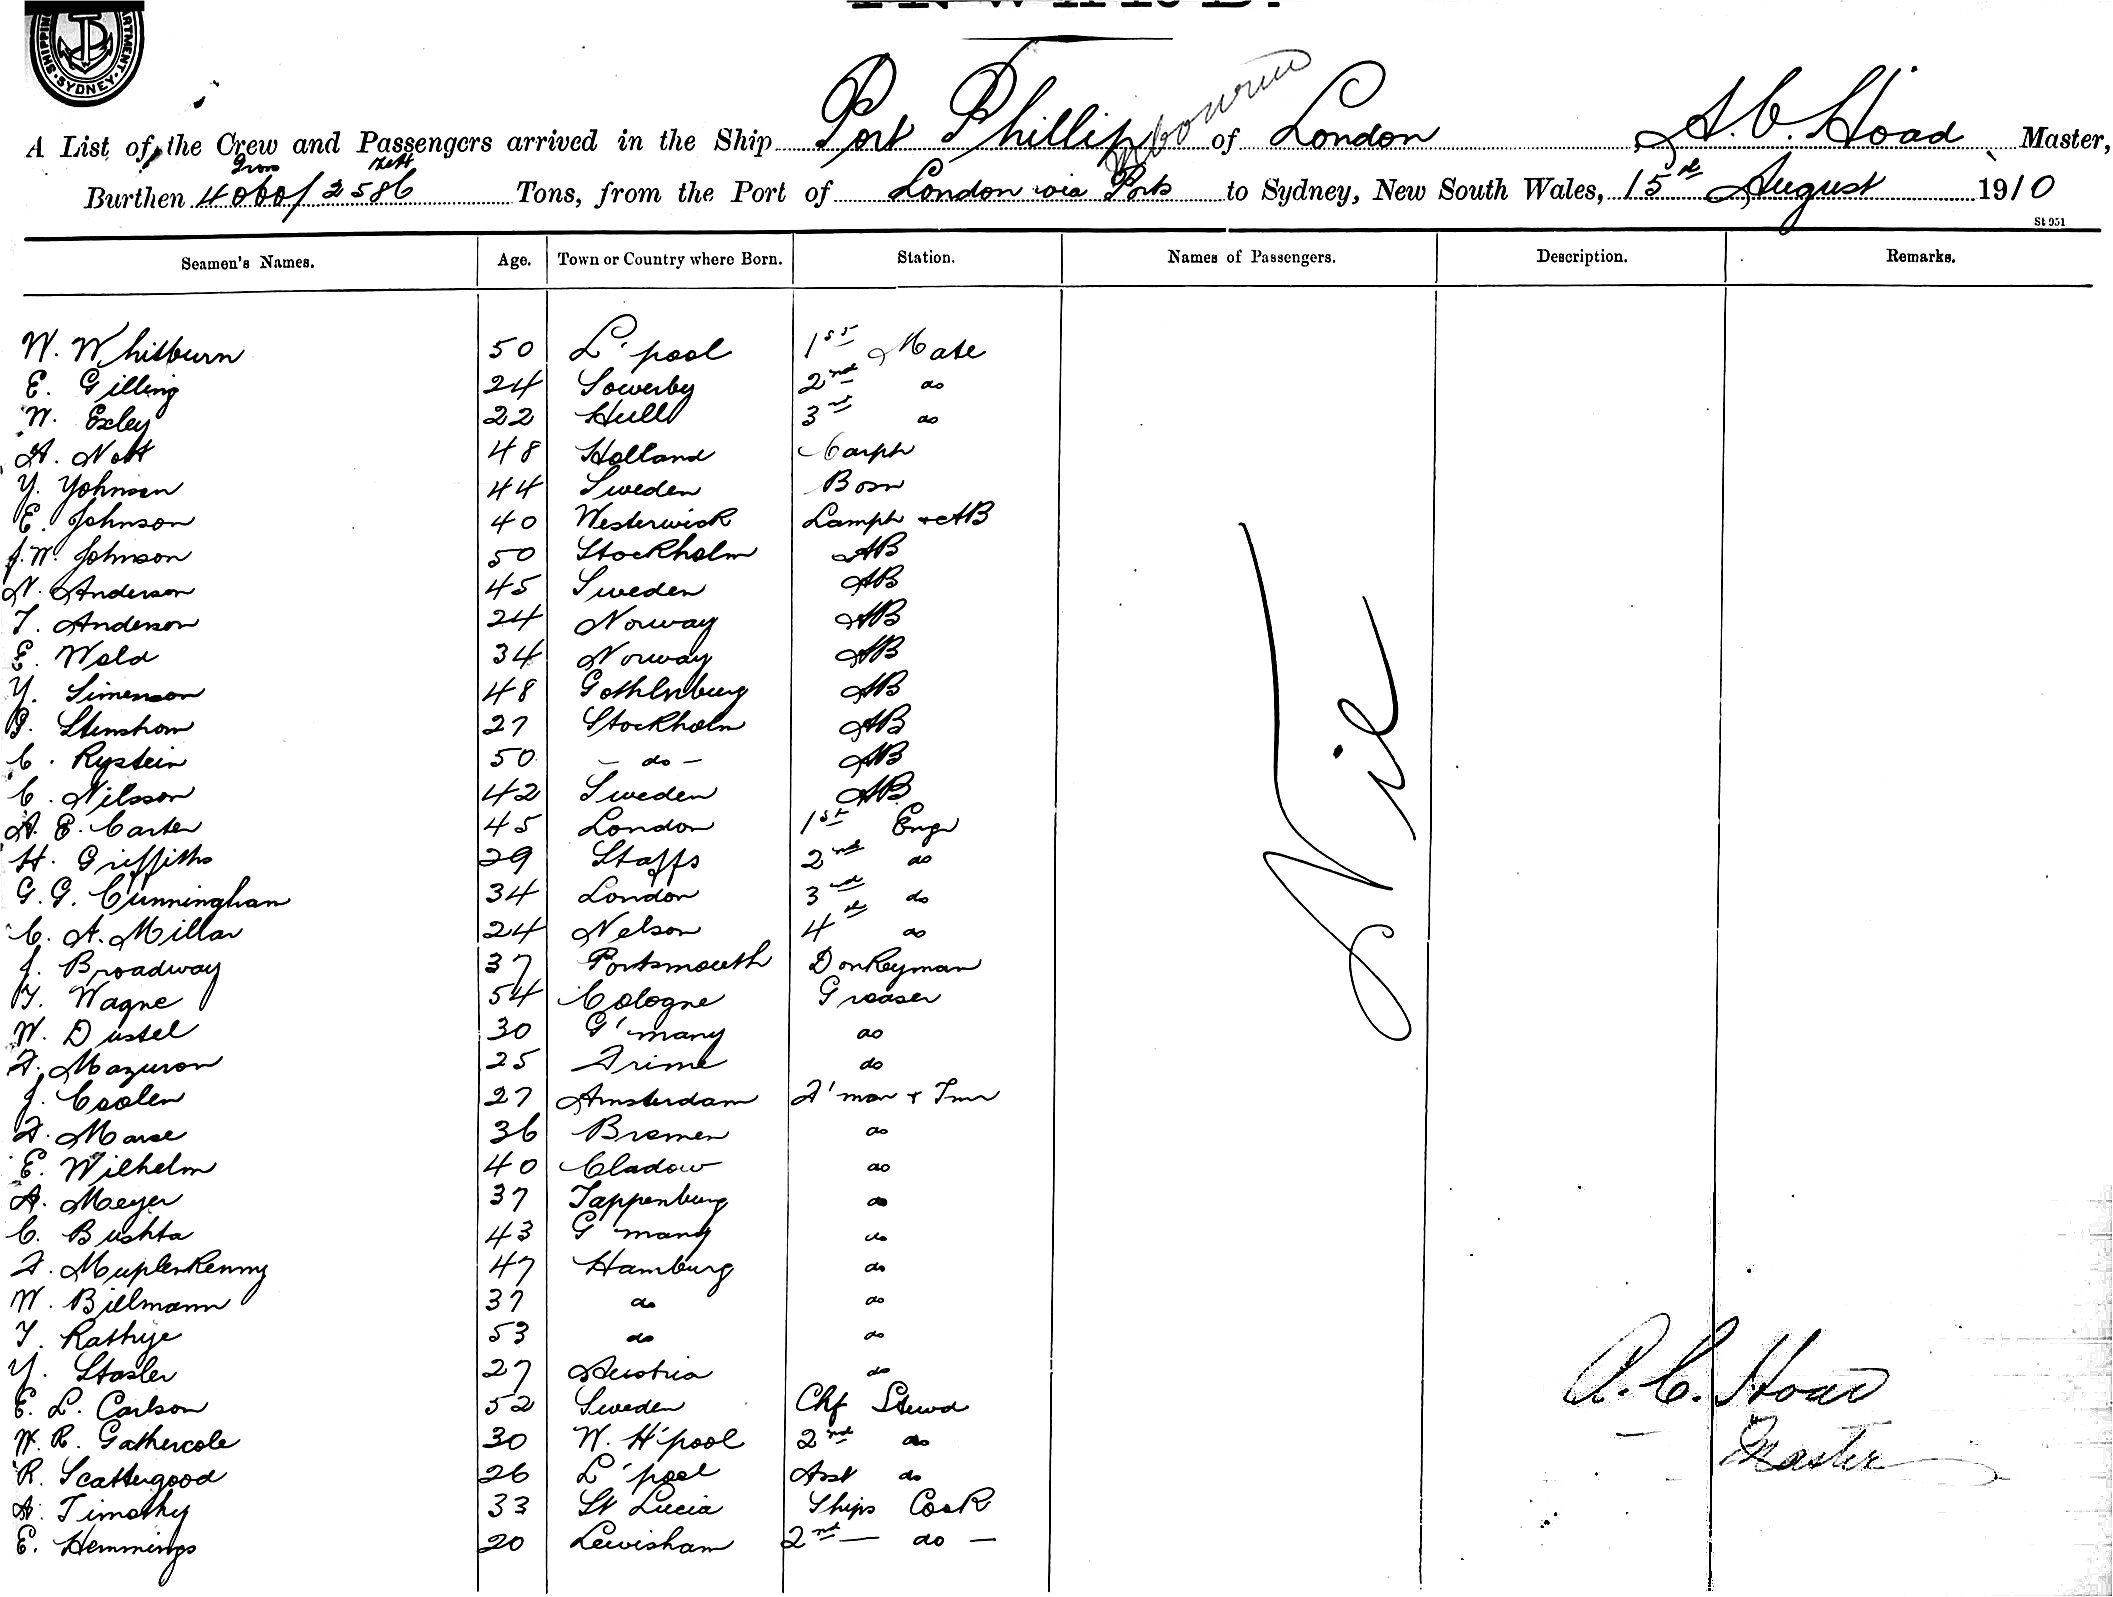 SYDNEY
A List of the Crew and Passengers arrived in the Ship Port Phillip of London A. C. Hoad Master,
Gross Nett
Burthen 4060/2586 Tons, from the Port of London via Ports to Sydney, New South Wales, 15th August 1910
St 951
Seamen's Names. Age. Town or Country where Born. Station. Names of Passengers. Description. Remarks.
W. Whitburn 50 L'pool 1st Mate
E. Gilling 24 Sowerby 2nd do
W. Exley 22 Hull 3rd do
A. Nott 48 Holland Carptr
Y. Yohnson 44 Sweden Bosn
E. Johnson 40 Westerwick Lamptr & AB
J. W. Johnson 50 Stockholm AB
N. Anderson 45 Sweden AB
T. Anderson 24 Norway AB
E. Wold 34 Norway AB
Y. Simenson 48 Gothlnburg AB
G. Stenstrom 27 Stockholm AB
C. Rystein 50 - do - AB
C. Nilsson 42 Sweden AB
A. E. Carter 45 London 1st Engr
H. Griffiths 29 Staffs 2nd do
G. G. Cunningham 34 London 3rd do
C. A. Millar 24 Nelson 4th do
J. Broadway 37 Portsmouth Donkeyman
Y. Wagne 54 Cologne Greaser
W. Dustel 30 G'many do
F. Mazuron 25 Frime do
J. Coolen 27 Amsterdam F'man & Tmr
F. Marse 36 Bremen do
E. Wilhelm 40 Cladow do
A. Meyer 37 Tappenburg do
C. Bushta 43 G'many do
F. Muplenkenny 47 Hamburg do
W. Billmann 37 do do
T. Rathye 53 do do
Y. Stasler 27 Austria do
E. L. Carlson 52 Sweden Chf Stewd
W. R. Gathercole 30 W. H'pool 2nd do
R. Scattergood 26 L'pool Asst do
A. Timothy 33 St Lucia Ships Cook
E. Hemmings 20 Lewisham 2nd — do —
Nil
A. C. Hoad
Master